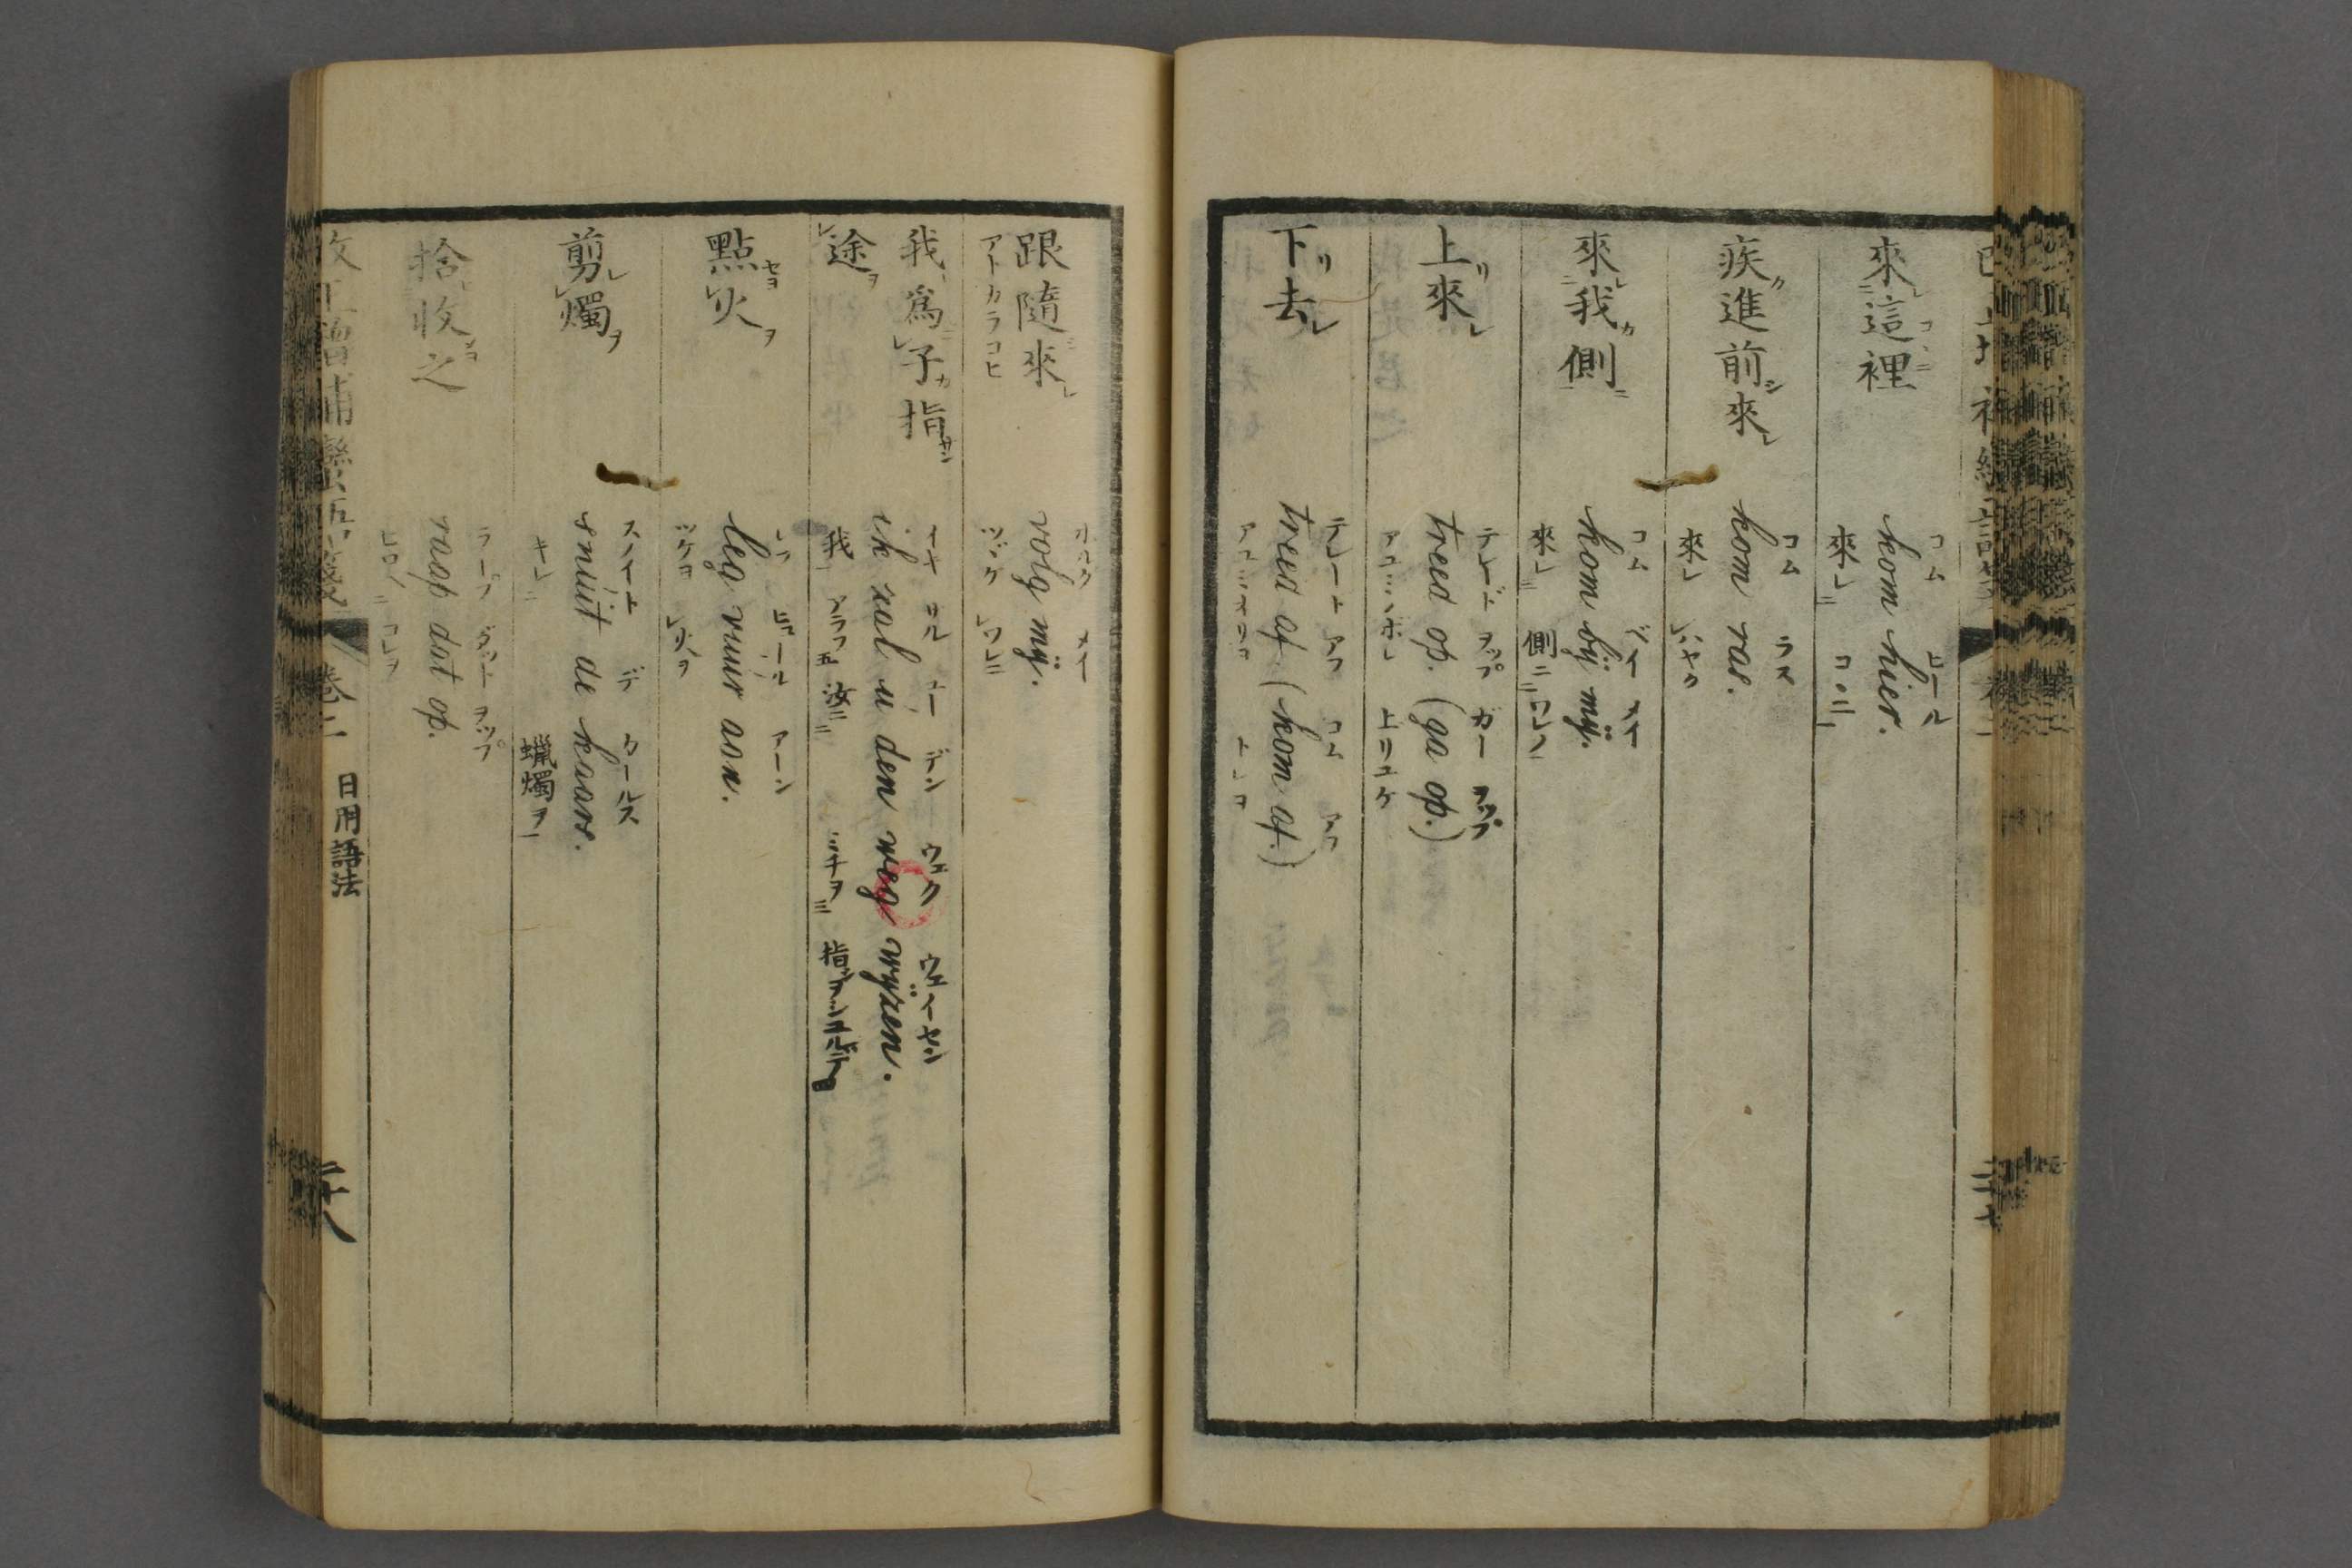 來レ這裡
コム ヒール
kom hier.
來レ二 コヽニ一
疾ク進前シ來レ
コム ラス
kom ras.
來レ レハヤク
來レ二我カ側ニ一
コム ベイ メイ
kom bÿ mÿ.
來レ二 側ニ二 ワレノ一
上リ來レ
テレード ヲップ ガー ヲップ
treed op. (ga op.)
アユミノボレ 上リユケ
下リ去レ
テレート アフ コム アフ
treed af. (kom af.)
跟隨來レ
アトカラコヒ
ホルク メイ
volg mÿ.
ツヾク レワレニ
我爲レ子カ指サシ
レ途ヲ
イキ サル ユー デン ウェク ウェイセン
ik zal u den weg wÿzen.
我一 アラフ五 汝ニ二 ミチヲ三
點セヨレ火ヲ
レフ ヒュール アーン
leg vuur aan.
ツケヨ レ火ヲ
剪レレ燭ヲ
スノイト デ カールス
snuit de kaars.
キレ二 蠟燭ヲ一
拾收之
ラープ ダット ヲップ
raap dat op.
ヒロヘ二 コレヲ
改正增補蠻語箋 卷二 日用語法 二十八